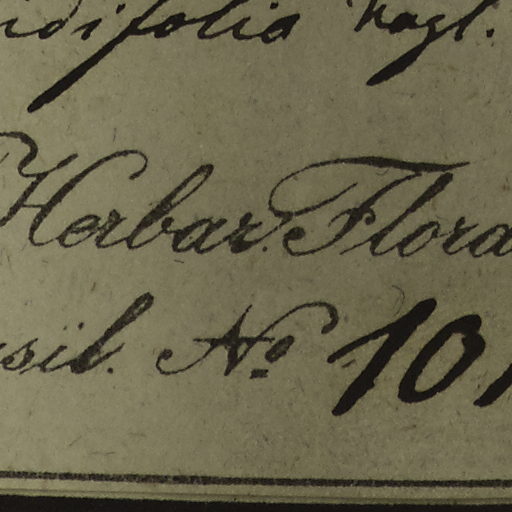 idifolia Nagl.
Herbar. Flora
sil. No 10